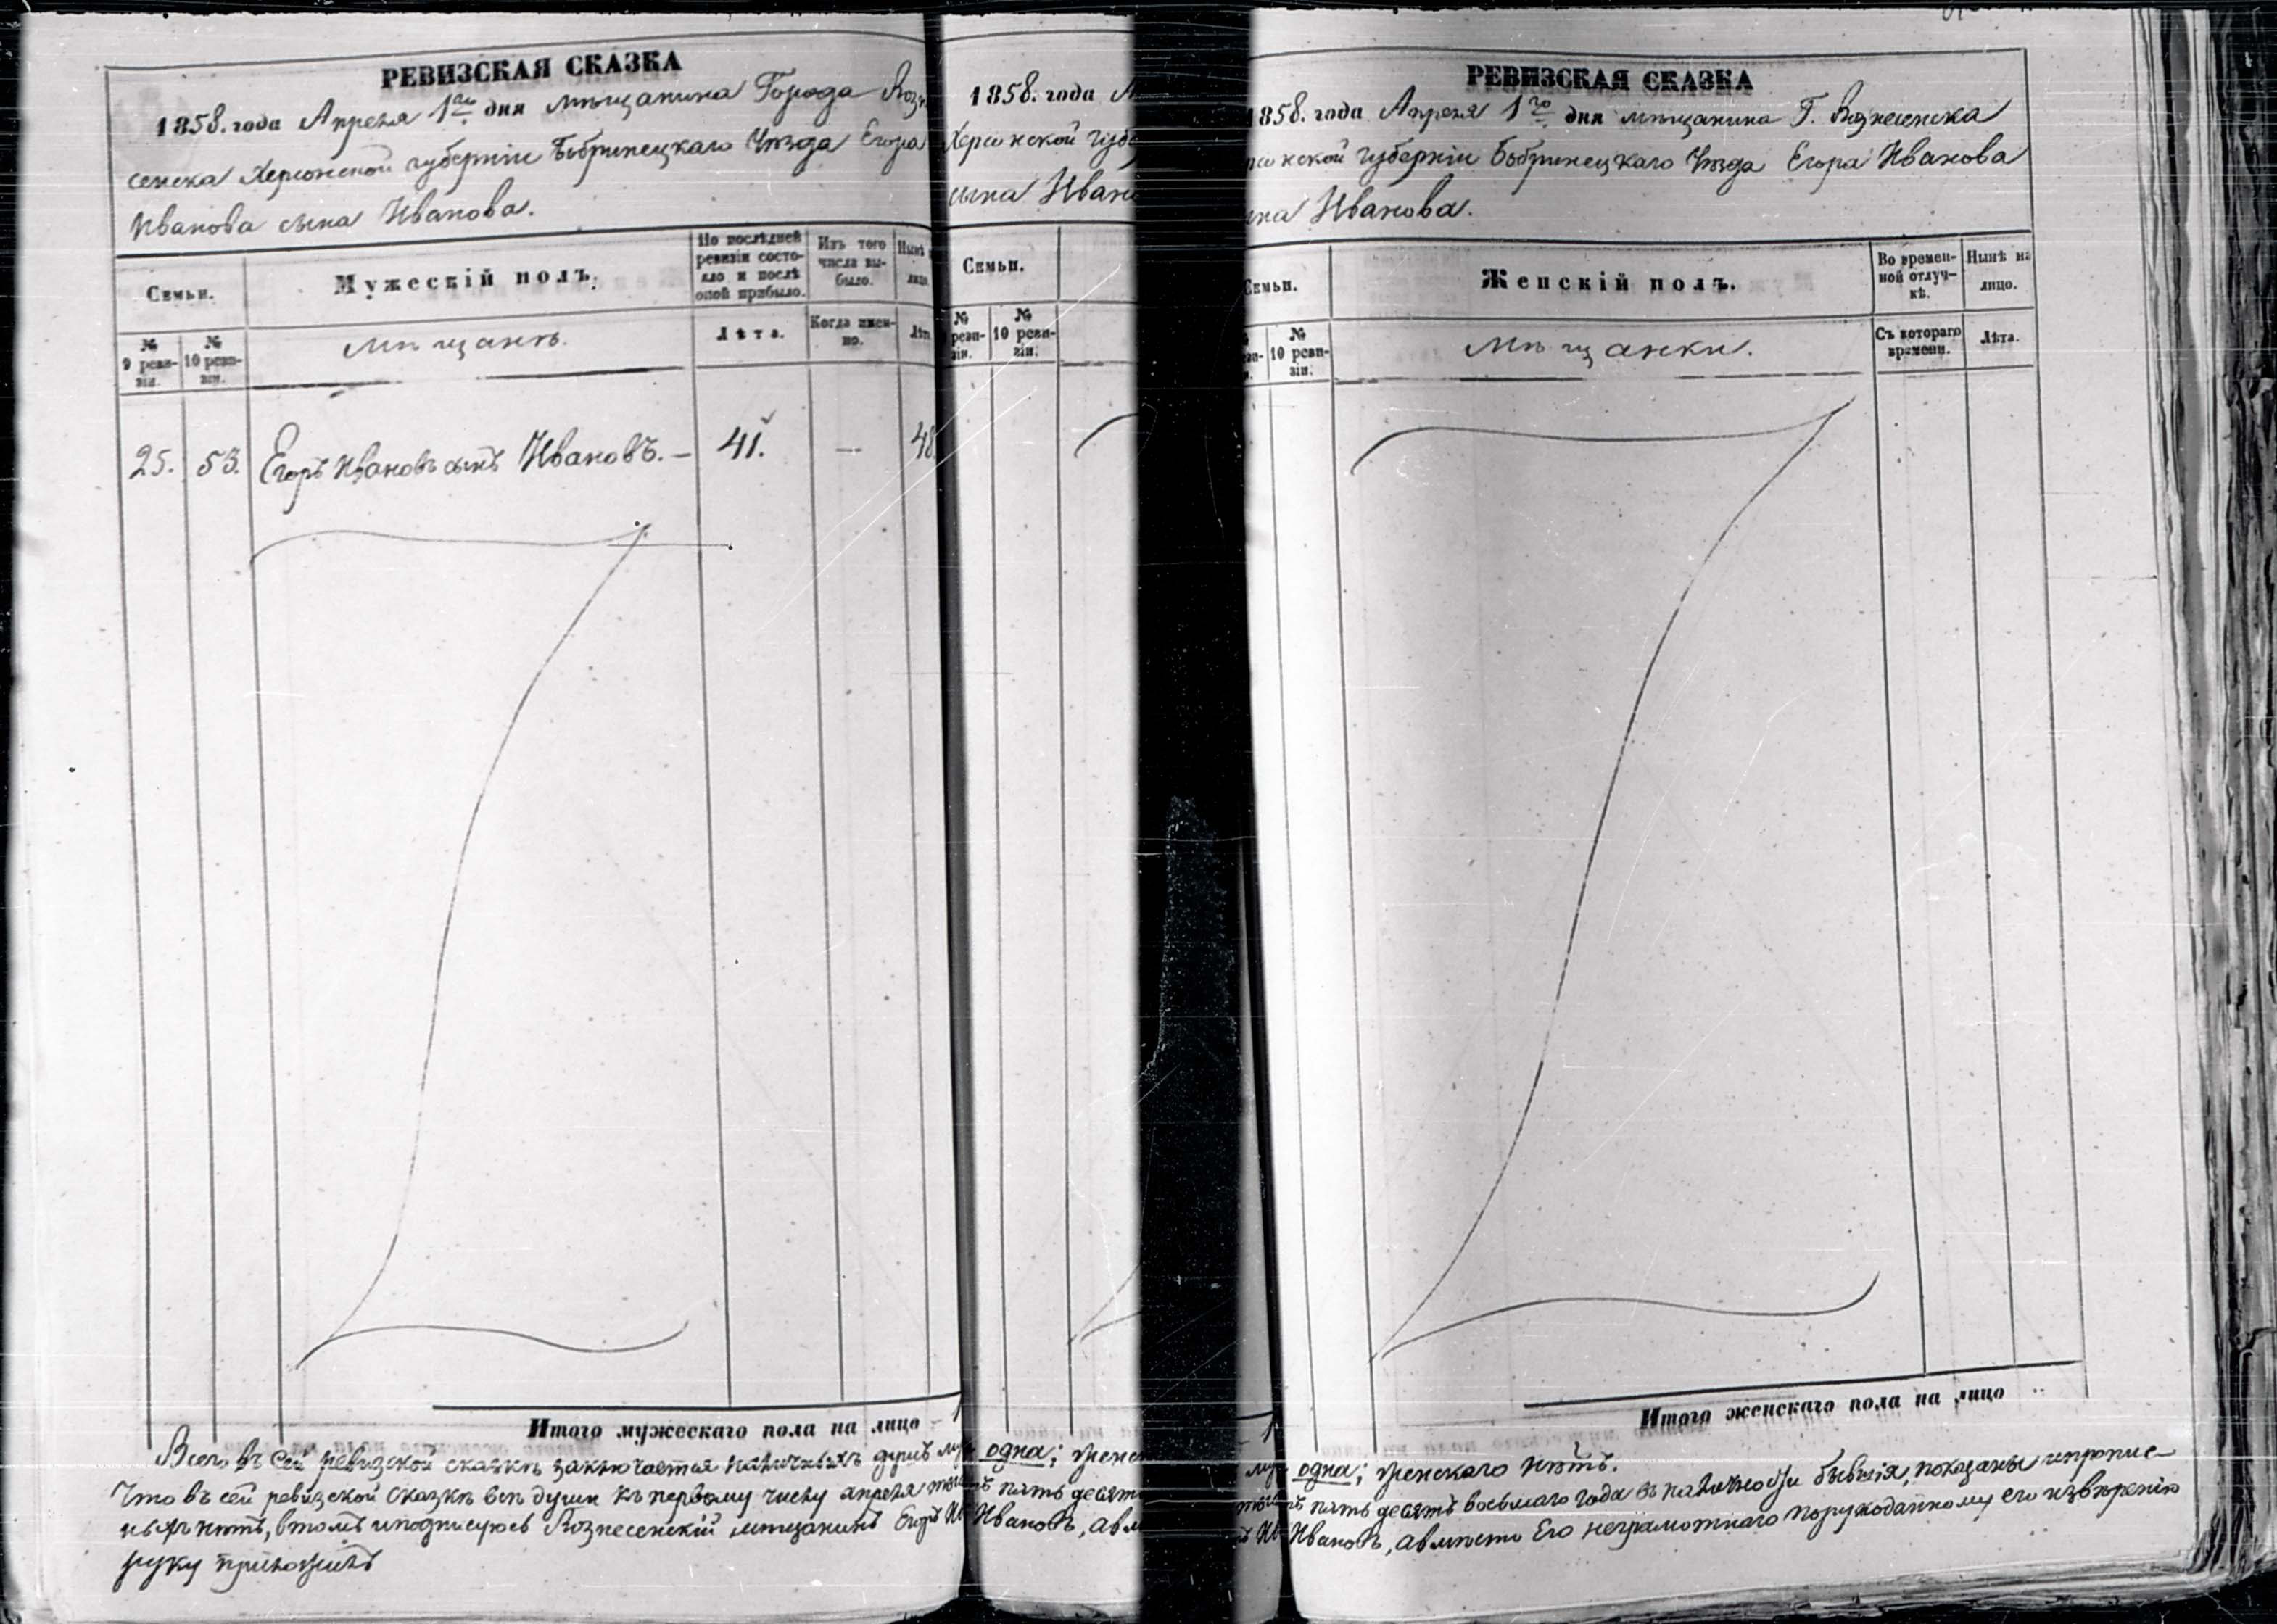 РЕВИЗСКАЯ СКАЗКА
1858. года Апреля 1го дня мѣщанина Города Воз
сенска Херсонской губерніи Бобринецкаго Уѣзда Егора
Иванова сына Иванова.
Семьи.
Мужескій полъ.
По послѣдней ревизіи состояло и послѣ оной прибыло.
Изъ того числа выбыло.
Нынѣ
лицо
№ 9 ревизіи.
№ 10 ревизіи.
мѣщанъ.
Лѣта.
Когда именно.
Лѣт
25. 53. Егоръ Ивановъ сынъ Ивановъ. — 41. — 48
Итого мужескаго пола на лицо - 1
Всего въ сей ревизской сказкѣ заключается наличныхъ душъ муж
Что въ сей ревизской сказкѣ всѣ души къ первому числу апреля тысяч
ныхъ нѣтъ, в томъ и подписуюсь Вознесенскій мѣщанинъ Егоръ Ив
руку приложилъ
1858. года А
Херсонской губе
сына Ивано
Семьи.
№ реви-зіи.
№ 10 реви-зіи.
одна; женск
пять десять
Ивановъ, а вм
РЕВИЗСКАЯ СКАЗКА
1858. года Апреля 1го дня мѣщанина Г. Вознесенска
рсонской губерніи Бобринецкаго Уѣзда Егора Иванова
ына Иванова.
Семьи.
Женскій полъ.
Во времен-ной отлуч-кѣ.
Нынѣ на лицо.
№ 10 реви-зіи.
мѣщанки.
Съ котораго времени.
Лѣта.
Итого женскаго пола на лицо
одна; женскаго нѣтъ.
пять десять восьмаго года въ наличности бывшія, показаны и пропис-
Ивановъ, а вместо Его неграмотнаго по рукоданному его изверенію